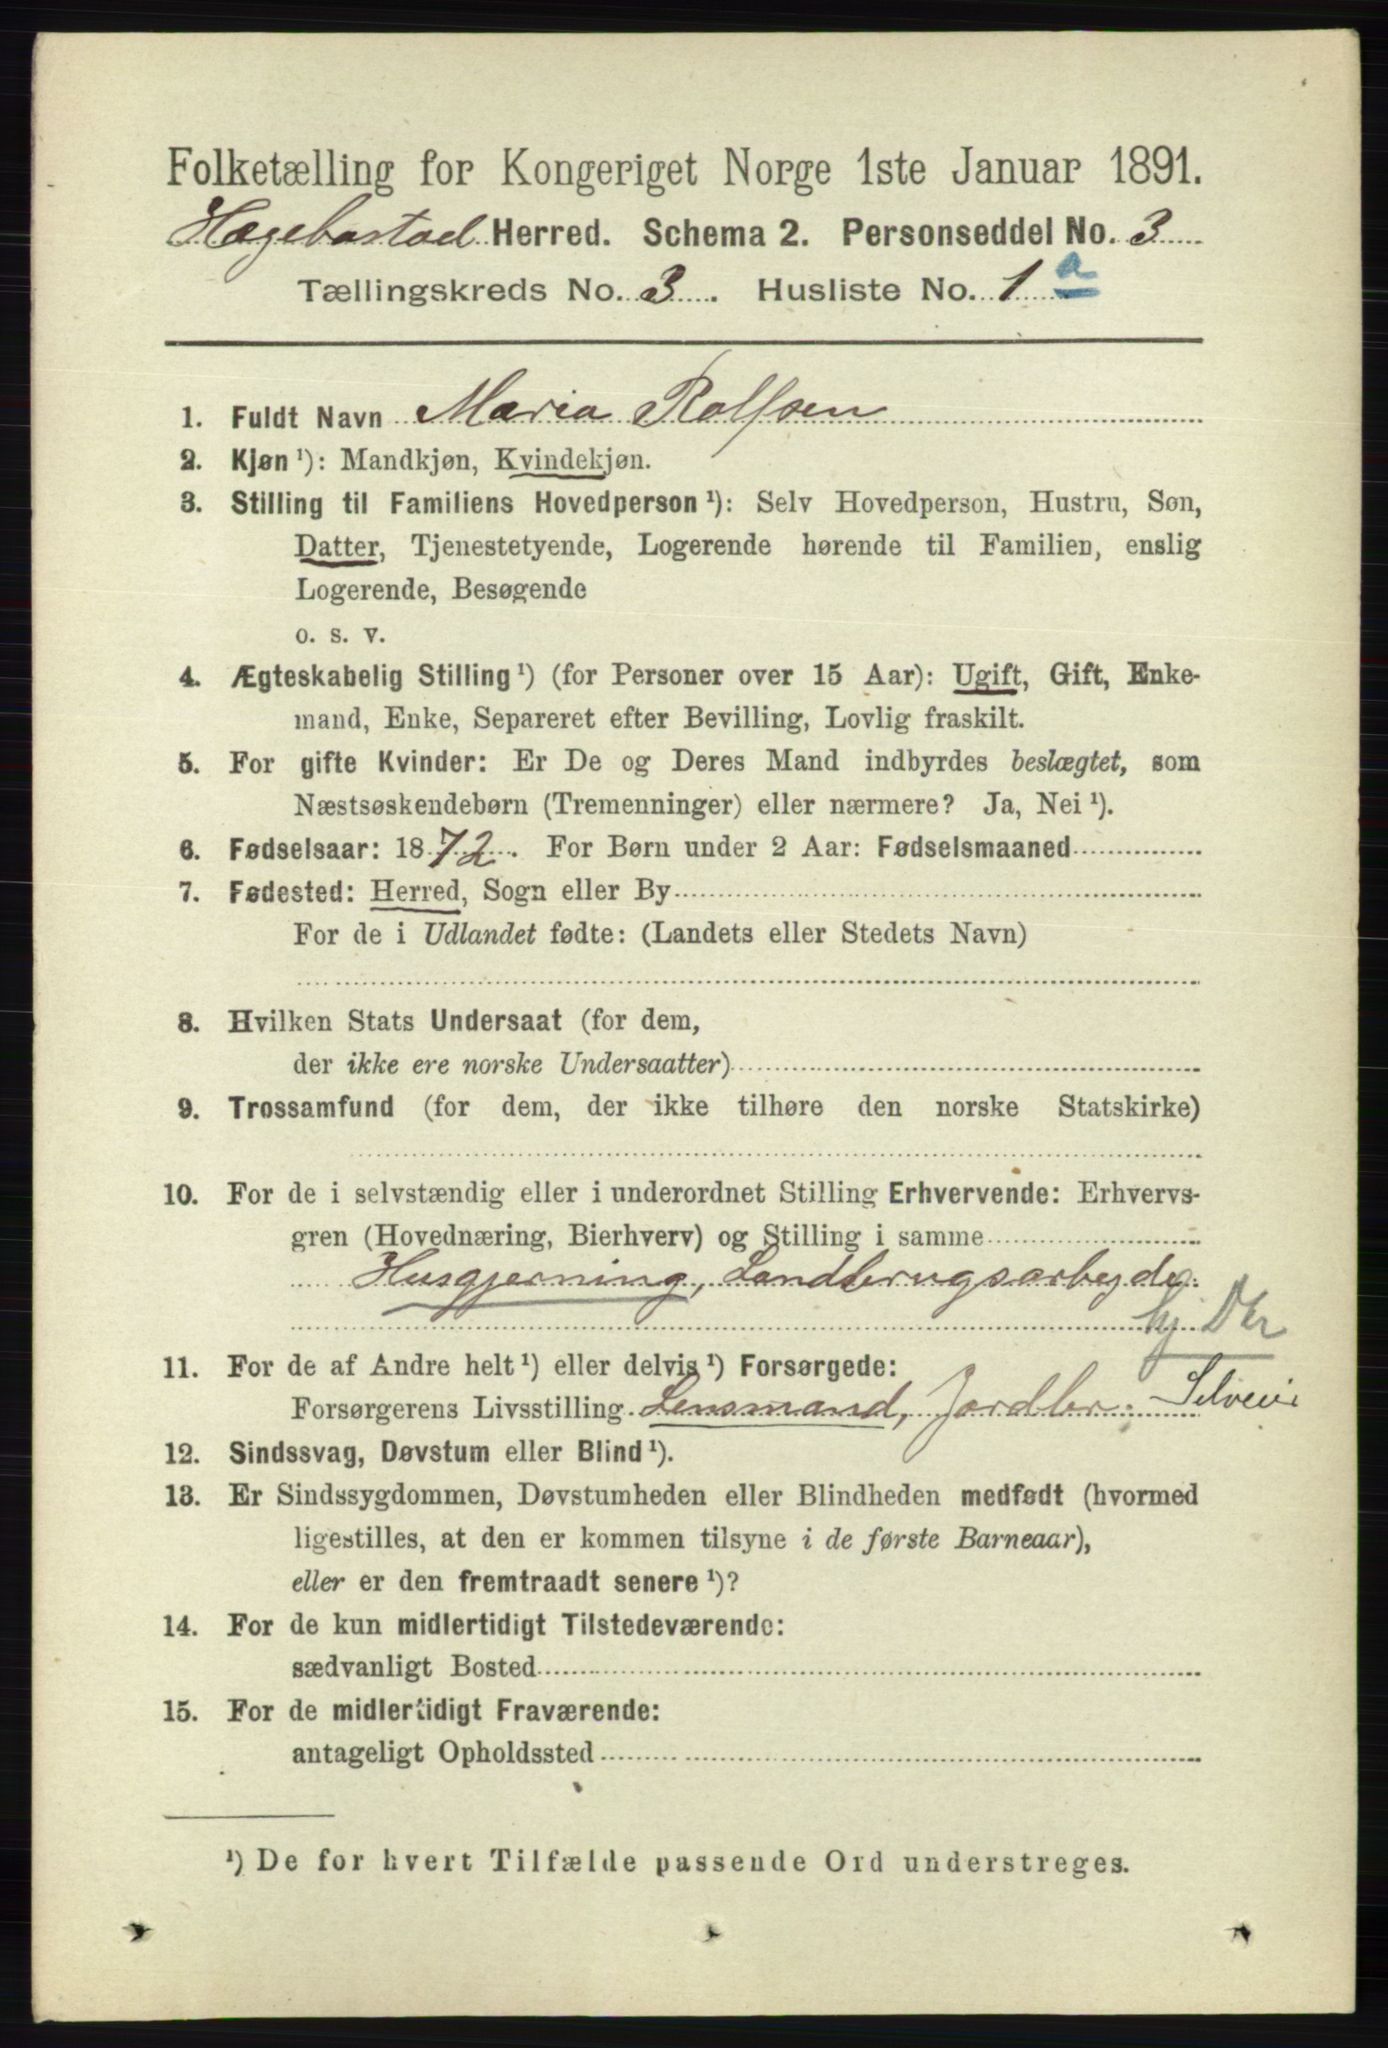 Folketælling for Kongeriget Norge 1ste Januar 1891.
Hægebostad Herred. Schema 2. Personseddel No. 3
Tællingskreds No. 3. Husliste No. 1 a
1. Fuldt Navn Maria Rolfsen
2. Kjøn ¹): Mandkjøn, Kvindekjøn.
3. Stilling til Familiens Hovedperson ¹): Selv Hovedperson, Hustru, Søn,
Datter, Tjenestetyende, Logerende hørende til Familien, enslig
Logerende, Besøgende
o. s. v.
4. Ægteskabelig Stilling ¹) (for Personer over 15 Aar): Ugift, Gift, Enke-
mand, Enke, Separeret efter Bevilling, Lovlig fraskilt.
5. For gifte Kvinder: Er De og Deres Mand indbyrdes beslægtet, som
Næstsøskendebørn (Tremenninger) eller nærmere? Ja, Nei ¹).
6. Fødselsaar: 1872. For Børn under 2 Aar: Fødselsmaaned
7. Fødested: Herred, Sogn eller By
For de i Udlandet fødte: (Landets eller Stedets Navn)
8. Hvilken Stats Undersaat (for dem,
der ikke ere norske Undersaatter)
9. Trossamfund (for dem, der ikke tilhøre den norske Statskirke)
10. For de i selvstændig eller i underordnet Stilling Erhvervende: Erhvervs-
gren (Hovednæring, Bierhverv) og Stilling i samme
Husgjerning, Landbrugsarbeyde
hj Dtr
11. For de af Andre helt ¹) eller delvis ¹) Forsørgede:
Forsørgerens Livsstilling Lensmand, Jordbr. Selveier
12. Sindssvag, Døvstum eller Blind ¹).
13. Er Sindssygdommen, Døvstumheden eller Blindheden medfødt (hvormed
ligestilles, at den er kommen tilsyne i de første Barneaar),
eller er den fremtraadt senere ¹)?
14. For de kun midlertidigt Tilstedeværende:
sædvanligt Bosted
15. For de midlertidigt Fraværende:
antageligt Opholdssted
¹) De for hvert Tilfælde passende Ord understreges.